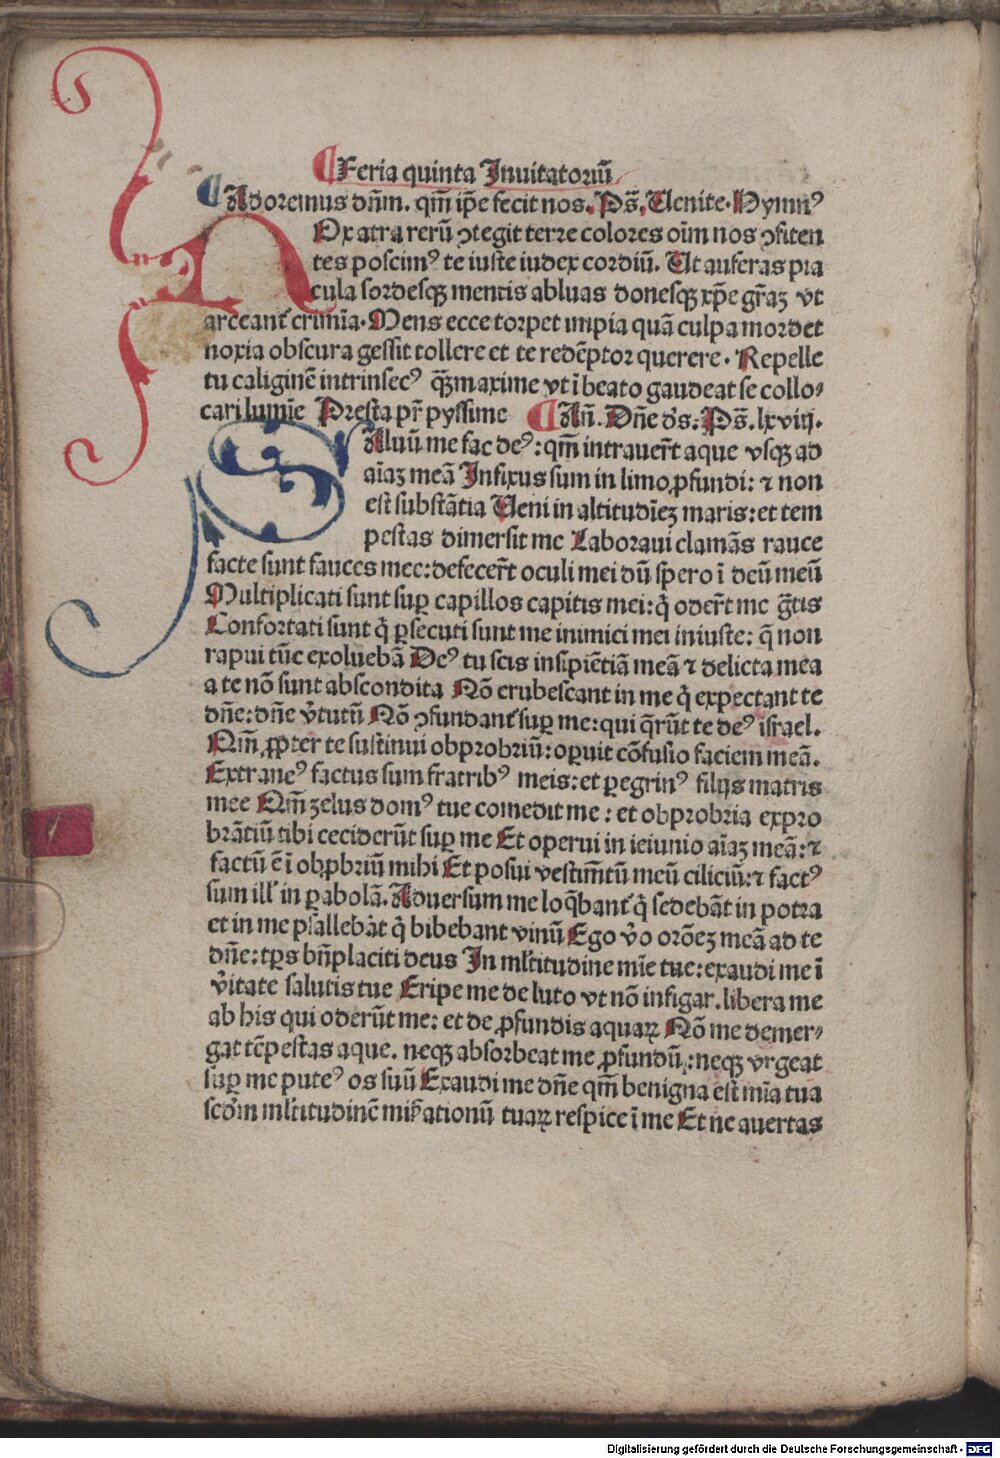 Feria quinta Inuitatoriū
Adoremus dn̄m. qm̄ ip̄e fecit nos. Ps̄. Uenite. Hymnꝰ
NOx atra rerū ꝯtegit terre colores oīm nos ꝯfiten
tes poscimꝰ te iuste iudex cordiū. Ut auferas pia
cula sordesqꝫ mentis abluas donesqꝫ xp̄e gr̄aꝫ vt
arceant᷑ crimīa. Mens ecce torpet impia quā culpa mordet
noxia obscura gessit tollere et te redēptor querere. Repelle
tu caliginē intrinsecꝰ qꝫ̄ maxime vt ī beato gaudeat se collo⸗
cari lumīe Presta pr̄ pyssime An̄. Dn̄e ds̄. Ps̄. lxviij.
SAluū me fac deꝰ: qm̄ intrauer̄t aque vsqꝫ ad
aīaꝫ meā Infixus sum in limo ꝓfundi: ⁊ non
est substātia Ueni in altitudīeꝫ maris: et tem
pestas dimersit me Laboraui clamās rauce
facte sunt fauces mee: defecer̄t oculi mei dū spero ī deū meū
Multiplicati sunt suꝑ capillos capitis mei: q̇ oder̄t me gr̄tis
Confortati sunt q̇ ꝑsecuti sunt me inimici mei iniuste: q̄ non
rapui tūc exoluebā Deꝰ tu scis insipiētiā meā ⁊ delicta mea
a te nō sunt abscondita Nō erubescant in me q̇ expectant te
dn̄e: dn̄e v̓tutū Nō ꝯfundant᷑ suꝑ me: qui q̄rūt te deꝰ israel.
Qm̄ ꝓpter te sustinui obprobriū: oꝑuit cōfusio faciem meā.
Extraneꝰ factus sum fratribꝰ meis: et ꝑegrinꝰ filijs matris
mee Qm̄ zelus domꝰ tue comedit me: et obprobria expro
brātiū tibi ceciderūt suꝑ me Et operui in ieiunio aīaꝫ meā: ⁊
factū ē ī obꝓbriū mihi Et posui vestim̄tū meū ciliciū: ⁊ factꝰ
sum ill᷑ in ꝑabolā. Aduersum me loq̄bant᷑ q̇ sedebāt in porta
et in me psallebāt q̇ bibebant vinū Ego v̓o orōeꝫ meā ad te
dn̄e: tp̄s bn̄placiti deus In ml̓titudine mīe tue: exaudi me ī
v̓itate salutis tue Eripe me de luto vt nō infigar. libera me
ab his qui oderūt me: et de ꝓfundis aquaꝝ Nō me demer⸗
gat tēpestas aque. neqꝫ absorbeat me ꝓfundū: neqꝫ vrgeat
suꝑ me puteꝰ os suū Exaudi me dn̄e qm̄ benigna est mīa tua
scd̓m ml̓titudinē mis̓ationū tuaꝝ respice ī me Et ne auertas
Digitalisierung gefördert durch die Deutsche Forschungsgemeinschaft - DFG